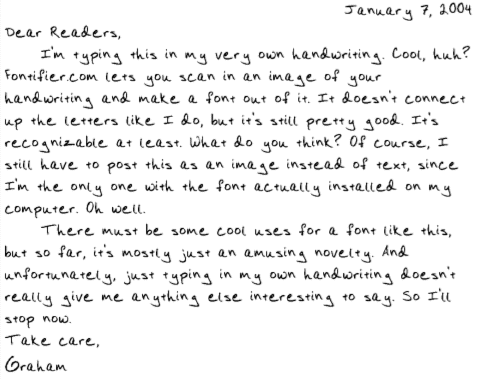 January 7, 2004
Dear Readers,
I'm typing this in my very own handwriting. Cool, huh?
Fontifier.com lets you scan in an image of your
handwriting and make a font out of it. It doesn't connect
up the letters like I do, but it's still pretty good. It's
recognizable at least. What do you think? Of course, I
still have to post this as an image instead of text, since
I'm the only one with the font actually installed on my
computer. Oh well.
There must be some cool uses for a font like this,
but so far, it's mostly just an amusing novelty. And
unfortunately, just typing in my own handwriting doesn't
really give me anything else interesting to say. So I'll
stop now.
Take care,
Graham